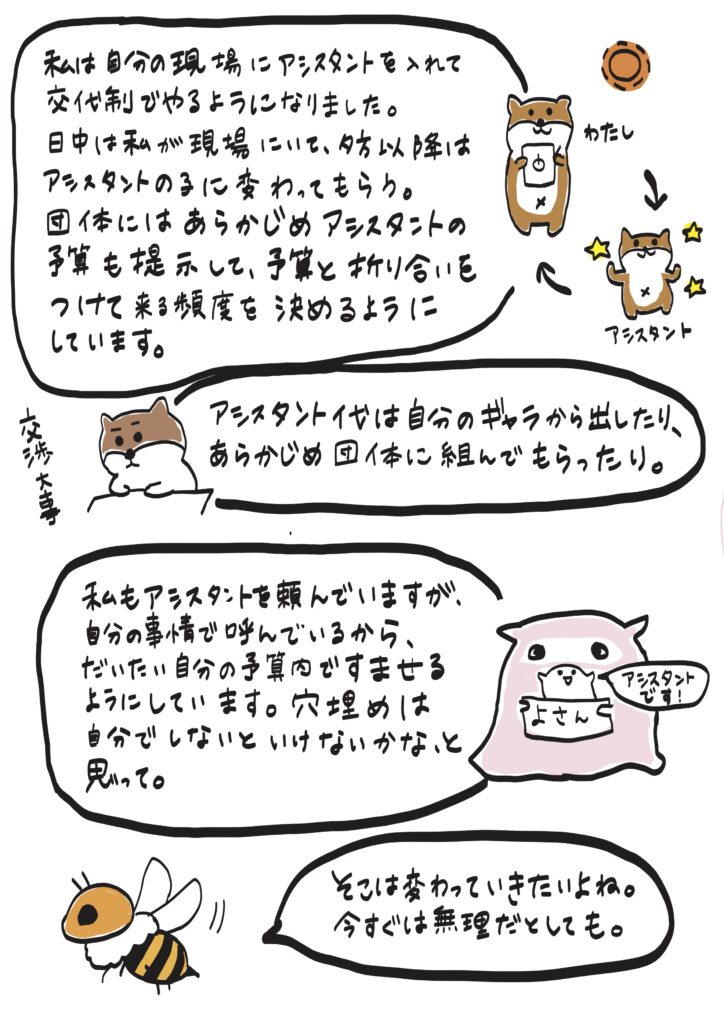 私は自分の現場にアシスタントを入れて
交代制でやるようになりました。
日中は私が現場にいて、夕方以降は
アシスタントの子に変わってもらう。
団体にはあらかじめアシスタントの
予算も提示して、予算と折り合いを
つけて来る頻度を決めるように
しています。
わたし
アシスタント
アシスタント代は自分のギャラから出したり、
あらかじめ団体に組んでもらったり。
交渉大事
私もアシスタントを頼んでいますが、
自分の事情で呼んでいるから、
だいたい自分の予算内ですませる
ようにしています。穴埋めは
自分でしないといけないかな、と
思って。
アシスタント
です!
よさん
そこは変わっていきたいよね。
今すぐは無理だとしても。